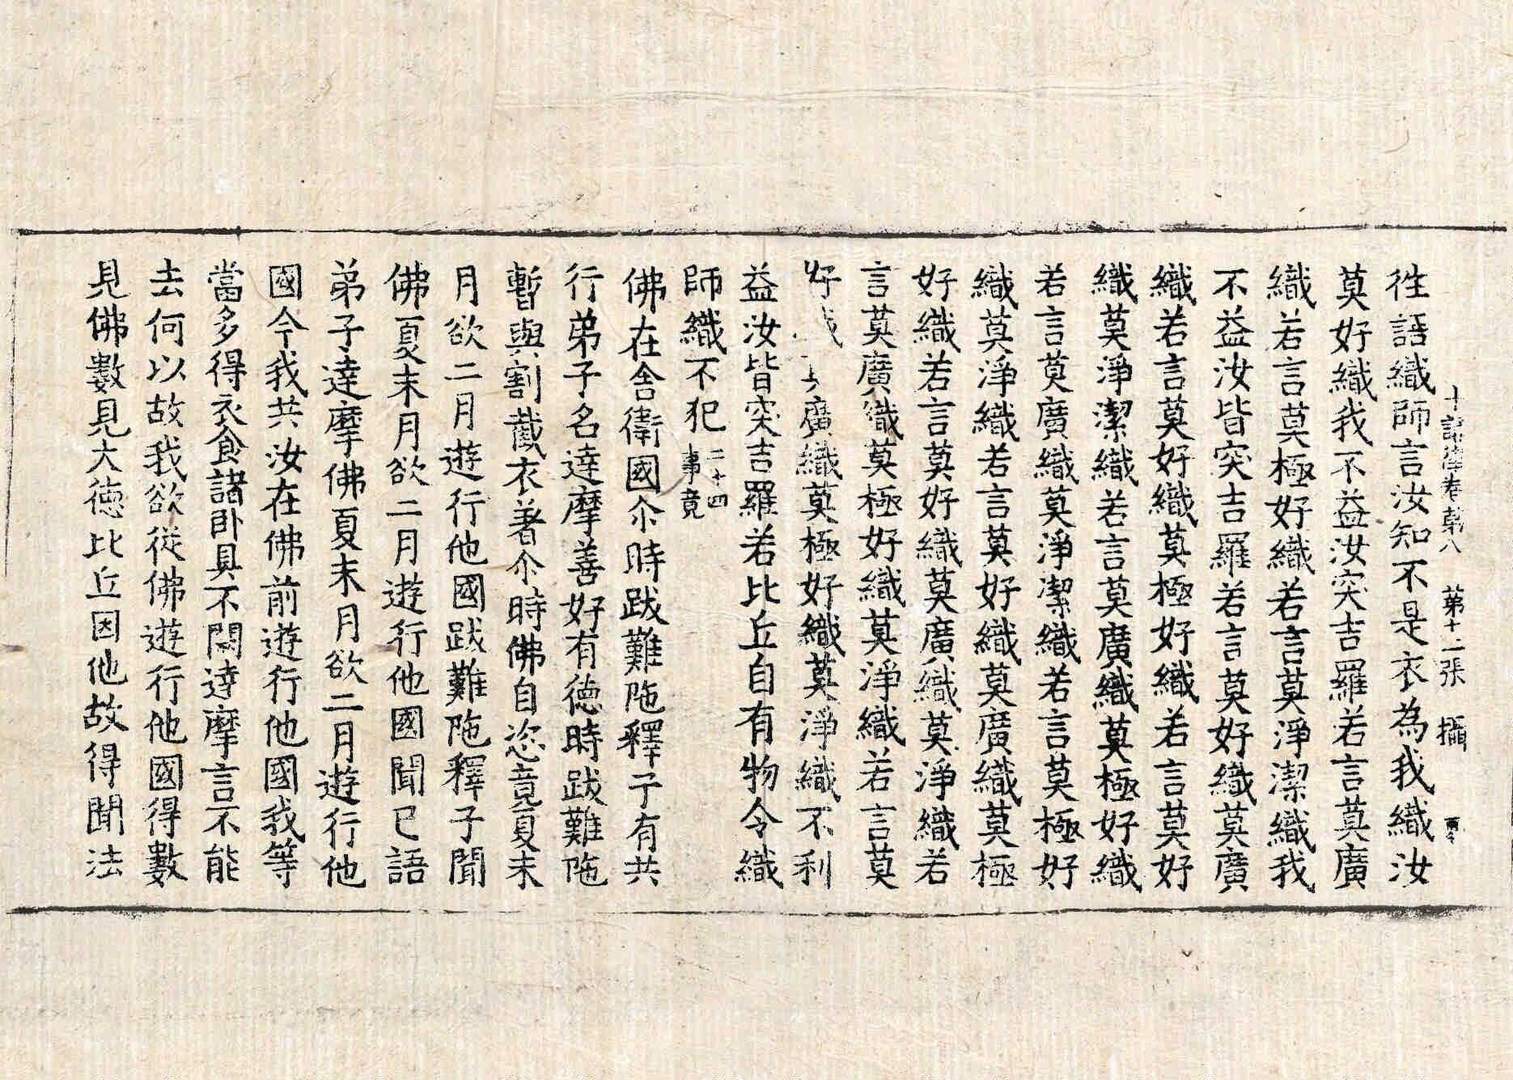 十誦律卷第八　第十二張　攝
往語織師言汝知不是衣為我織汝
莫好織我不益汝突吉羅若言莫廣
織若言莫極好織若言莫淨潔織我
不益汝皆突吉羅若言莫好織莫廣
織若言莫好織莫極好織若言莫好
織莫淨潔織若言莫廣織莫極好織
若言莫廣織莫淨潔織若言莫極好
織莫淨織若言莫好織莫廣織莫極
好織若言莫好織莫廣織莫淨織若
言莫廣織莫極好織莫淨織若言莫
好織莫廣織莫極好織莫淨織不利
益汝皆突吉羅若比丘自有物令織
師織不犯二十四事竟
佛在舍衛國尒時跋難陁釋子有共
行弟子名達摩善好有德時跋難陁
暫與割截衣著尒時佛自恣竟夏末
月欲二月遊行他國跋難陁釋子聞
佛夏末月欲二月遊行他國聞已語
弟子達摩佛夏末月欲二月遊行他
國今我共汝在佛前遊行他國我等
當多得衣食諸卧具不闕達摩言不能
去何以故我欲從佛遊行他國得數
見佛數見大德比丘因他故得聞法